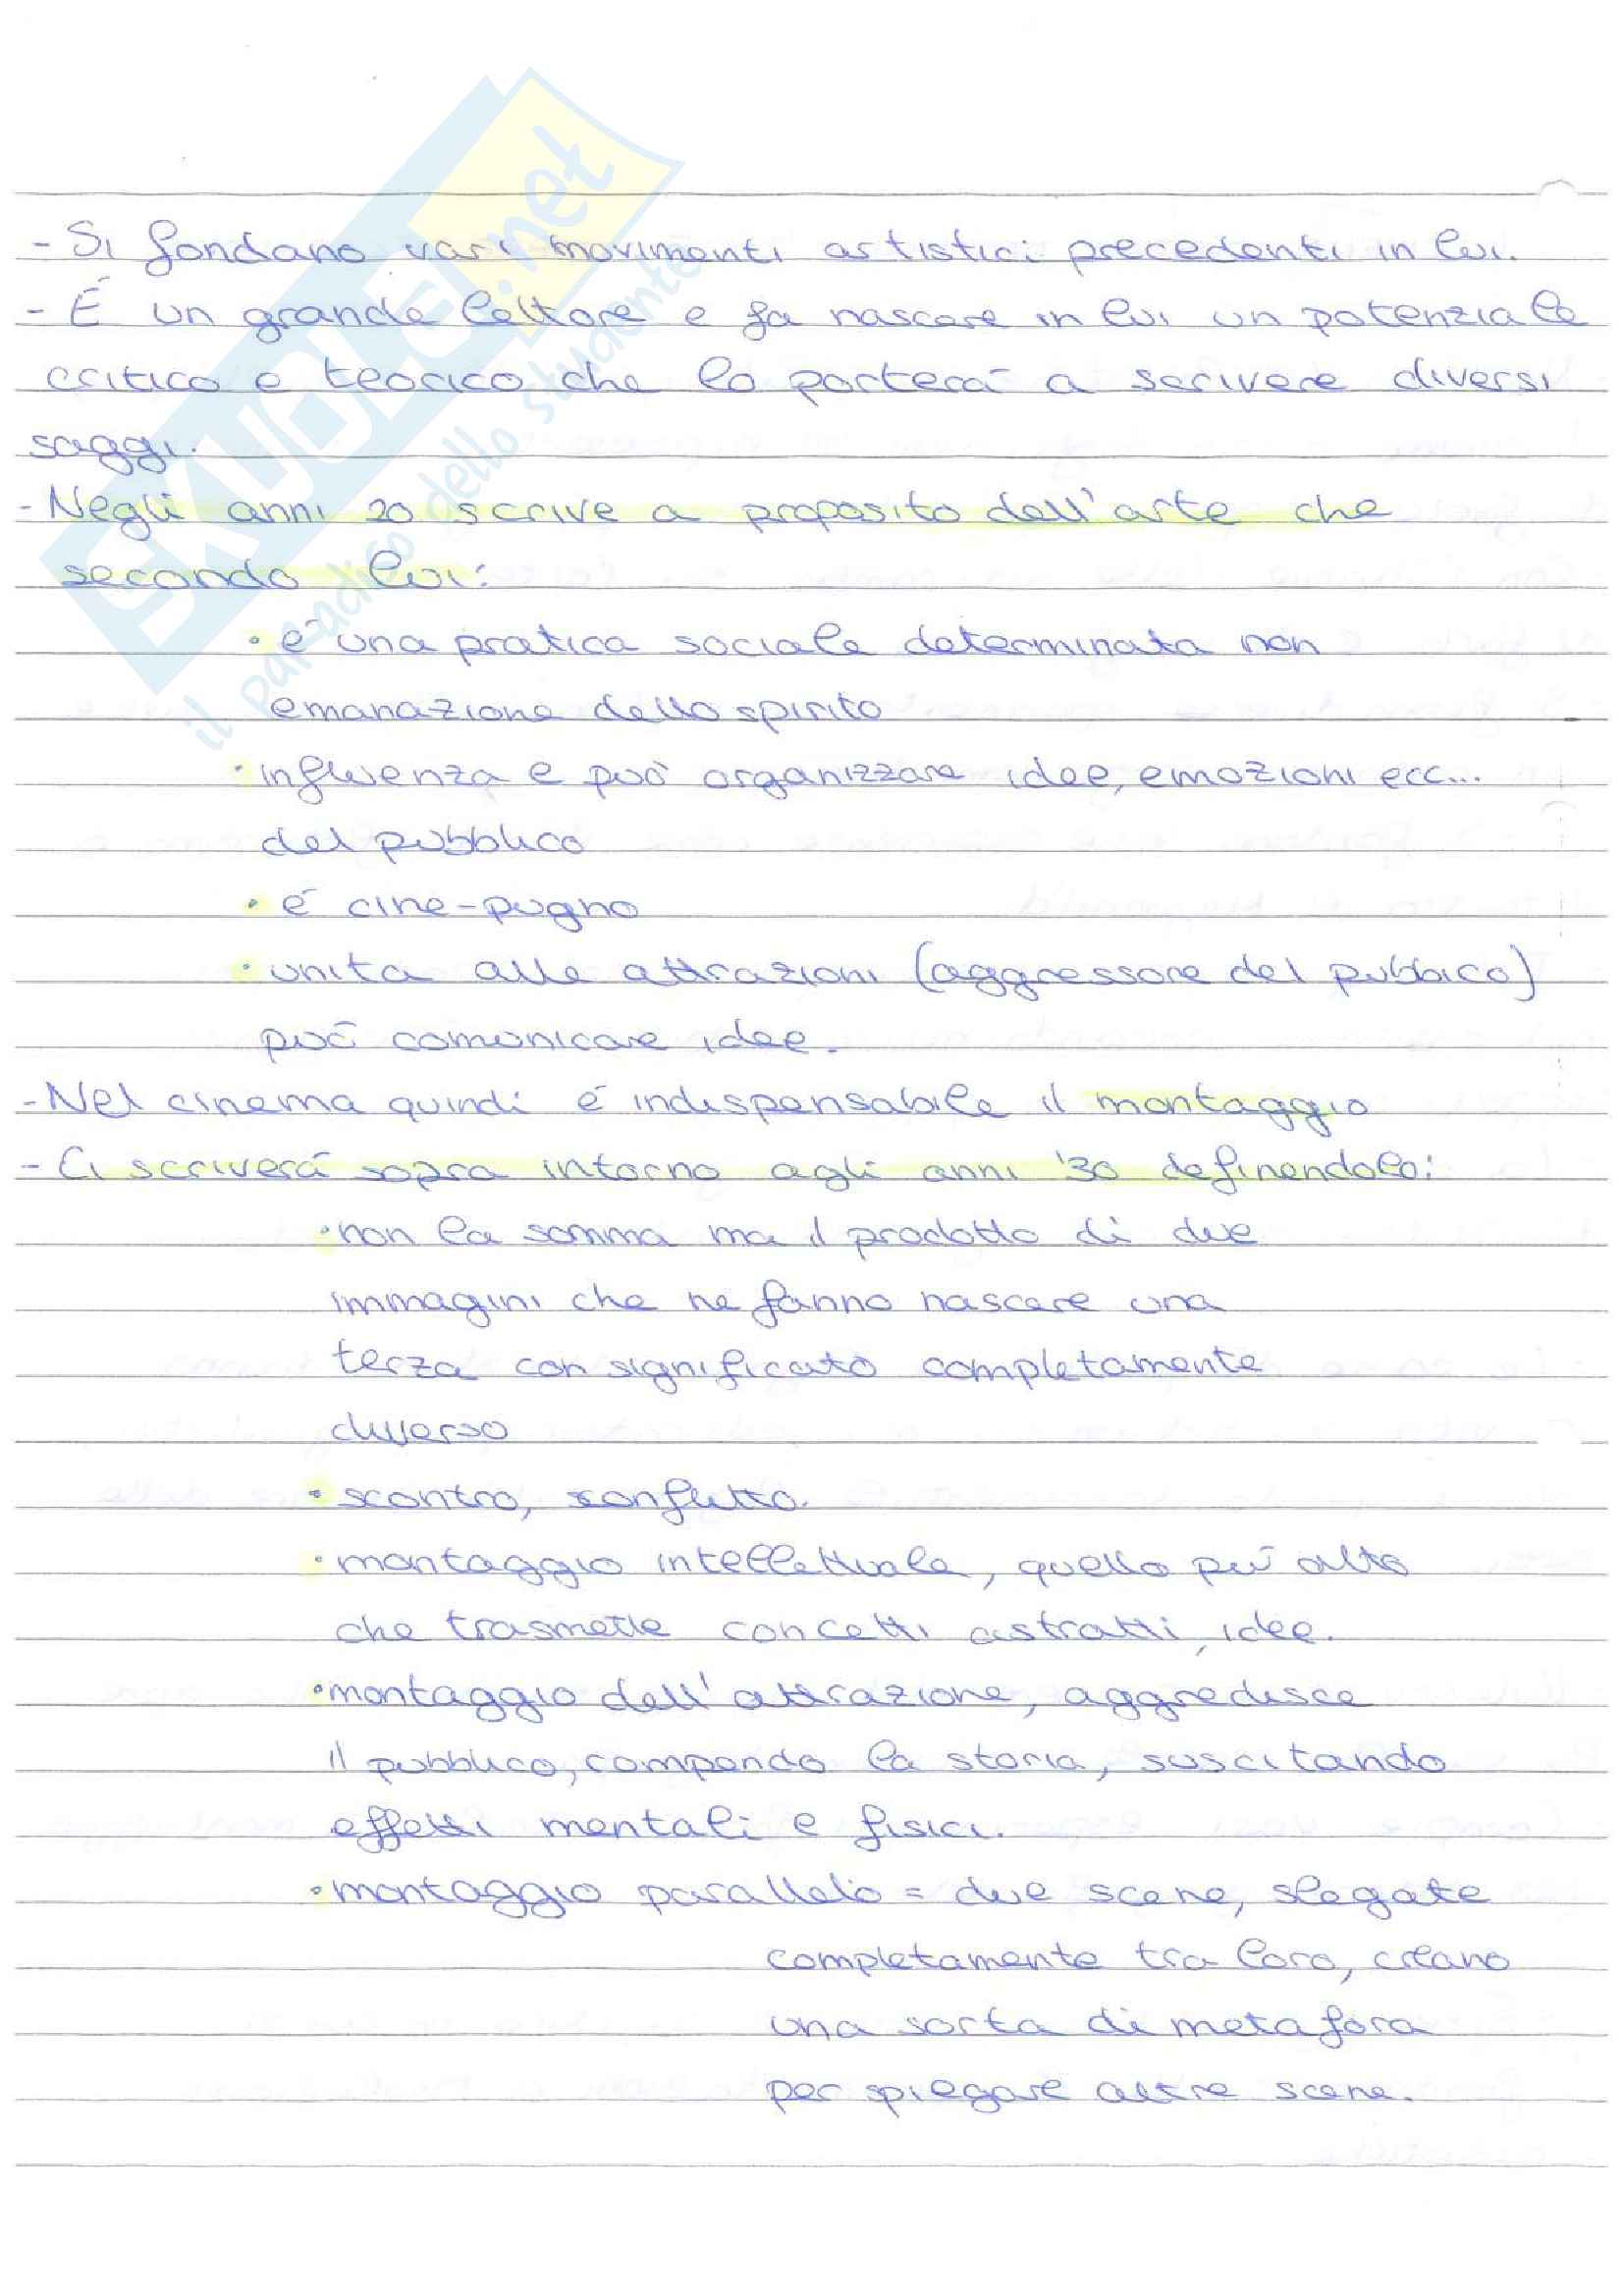 SKUOLA.net
il paradiso dello studente
- Si fondano vari movimenti artistici precedenti in lui.
- É un grande lettore e fa nascere in lui un potenziale
critico e teorico che lo porterà a scrivere diversi
saggi.
- Negli anni 20 scrive a proposito dell'arte che
secondo lui:
• é una pratica sociale determinata non
emanazione dello spirito
• influenza e può organizzare idee, emozioni ecc...
del pubblico
• é cine-pugno
• unita alle attrazioni (aggressore del pubblico)
può comunicare idee.
- Nel cinema quindi é indispensabile il montaggio
- Ci scriverà sopra intorno agli anni '30 definendolo:
• non la somma ma il prodotto di due
immagini che ne fanno nascere una
terza con significato completamente
diverso
• scontro, conflitto.
• montaggio intellettuale, quello più alto
che trasmette concetti astratti, idee.
• montaggio dell'attrazione, aggredisce
il pubblico, rompendo la storia, suscitando
effetti mentali e fisici.
• montaggio parallelo = due scene, slegate
completamente tra loro, creano
una sorta di metafora
per spiegare altre scene.